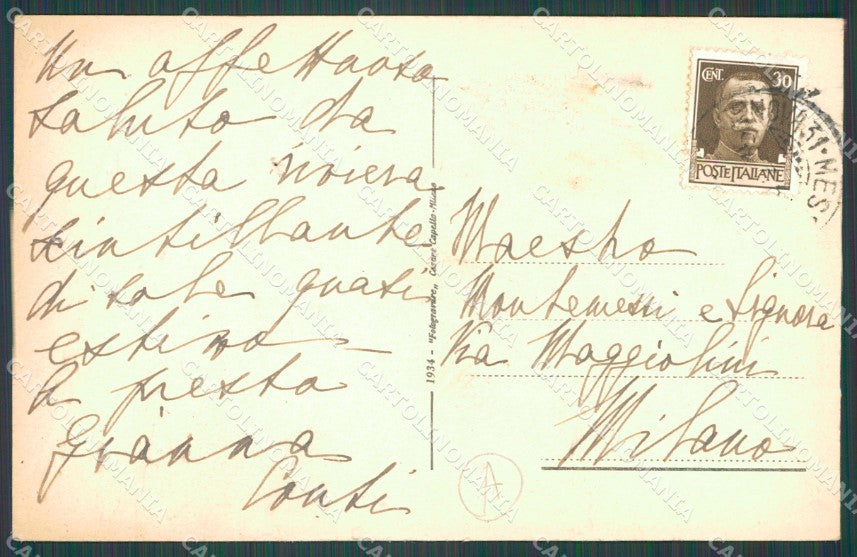 Un affettuoso
saluto da
questa riviera
scintillante
di sole quasi
estivo —
A presto
Gianna
Conti
1934 - "Fotogravure" Cesare Capello - Milano
CENT. 30
POSTE ITALIANE
Maestro
Montemezzi e Signora
Via Maggiolini
Milano
A
CARTOLINOMANIA